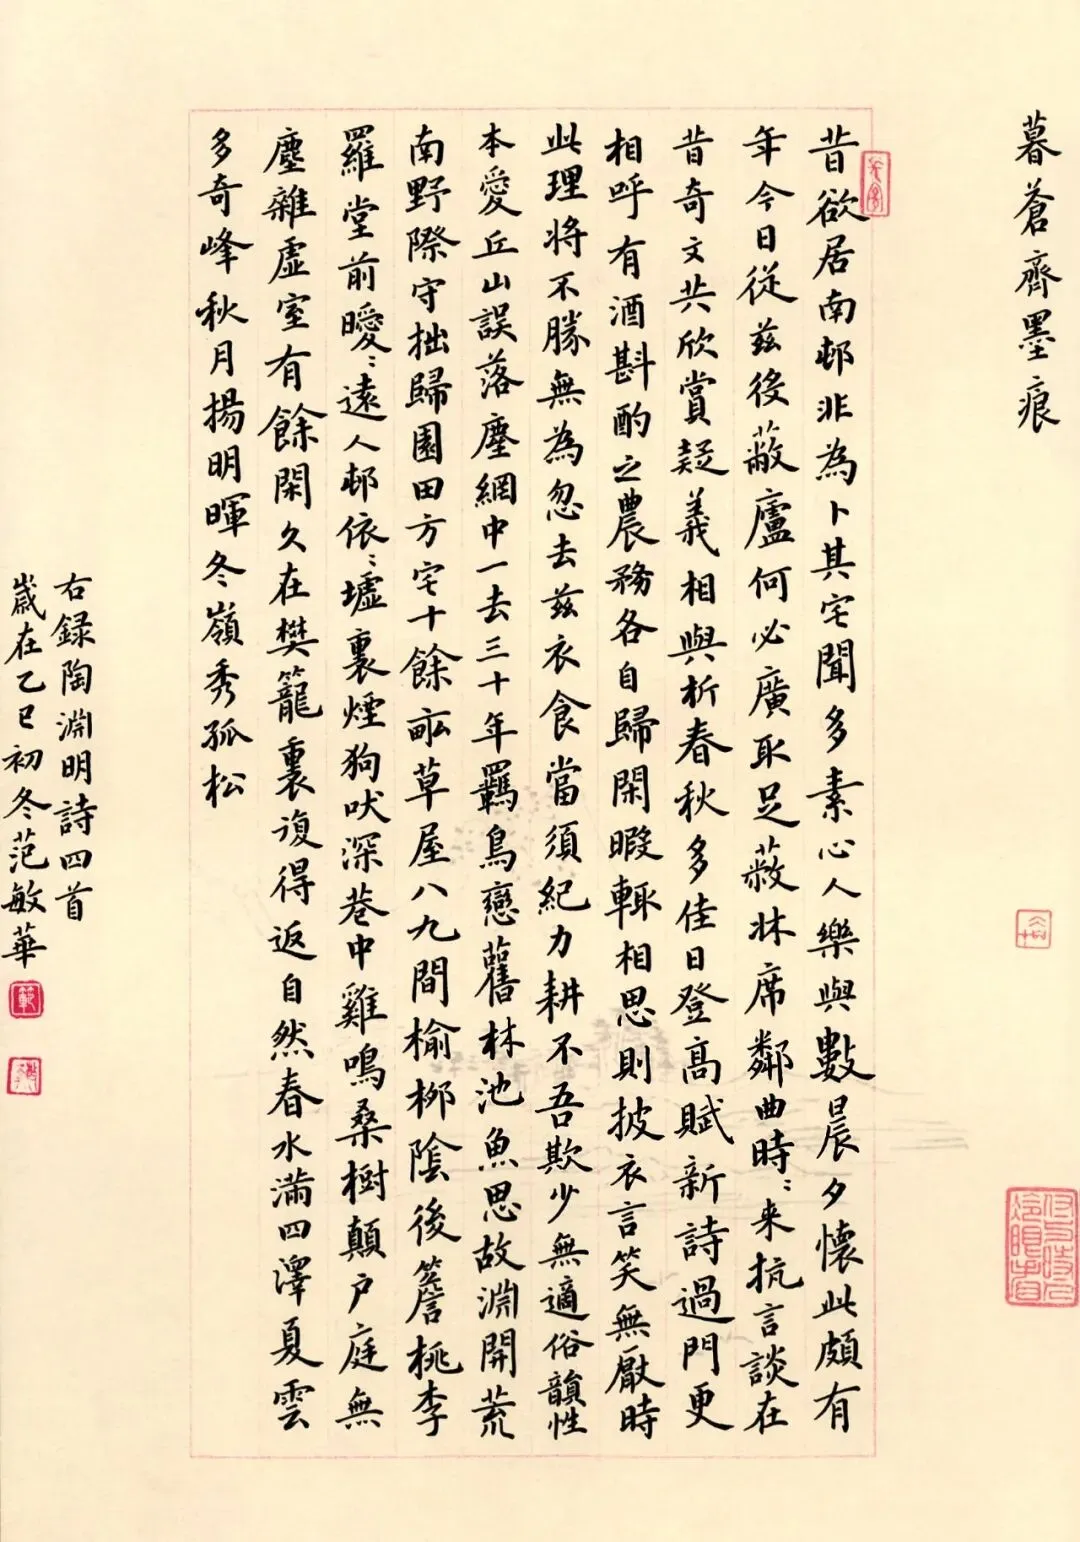 暮蒼齋墨痕
昔欲居南邨非為卜其宅聞多素心人樂與數晨夕懷此頗有
年今日從茲後蔽廬何必廣取足蔽牀席鄰曲時〻来抗言談在
昔奇文共欣賞疑義相與析春秋多佳日登高賦新詩過門更
相呼有酒斟酌之農務各自歸閑暇輒相思則披衣言笑無厭時
此理将不勝無為忽去茲衣食當須紀力耕不吾欺少無適俗韻性
本愛丘山誤落塵網中一去三十年羈鳥戀舊林池魚思故淵開荒
南野際守拙歸園田方宅十餘畝草屋八九間榆柳陰後簷桃李
羅堂前曖〻遠人邨依〻墟裏煙狗吠深巷中雞鳴桑樹顛户庭無
塵雜虛室有餘閑久在樊籠裏復得返自然春水滿四澤夏雲
多奇峰秋月揚明暉冬嶺秀孤松
右録陶淵明詩四首
歲在乙巳初冬范敏華